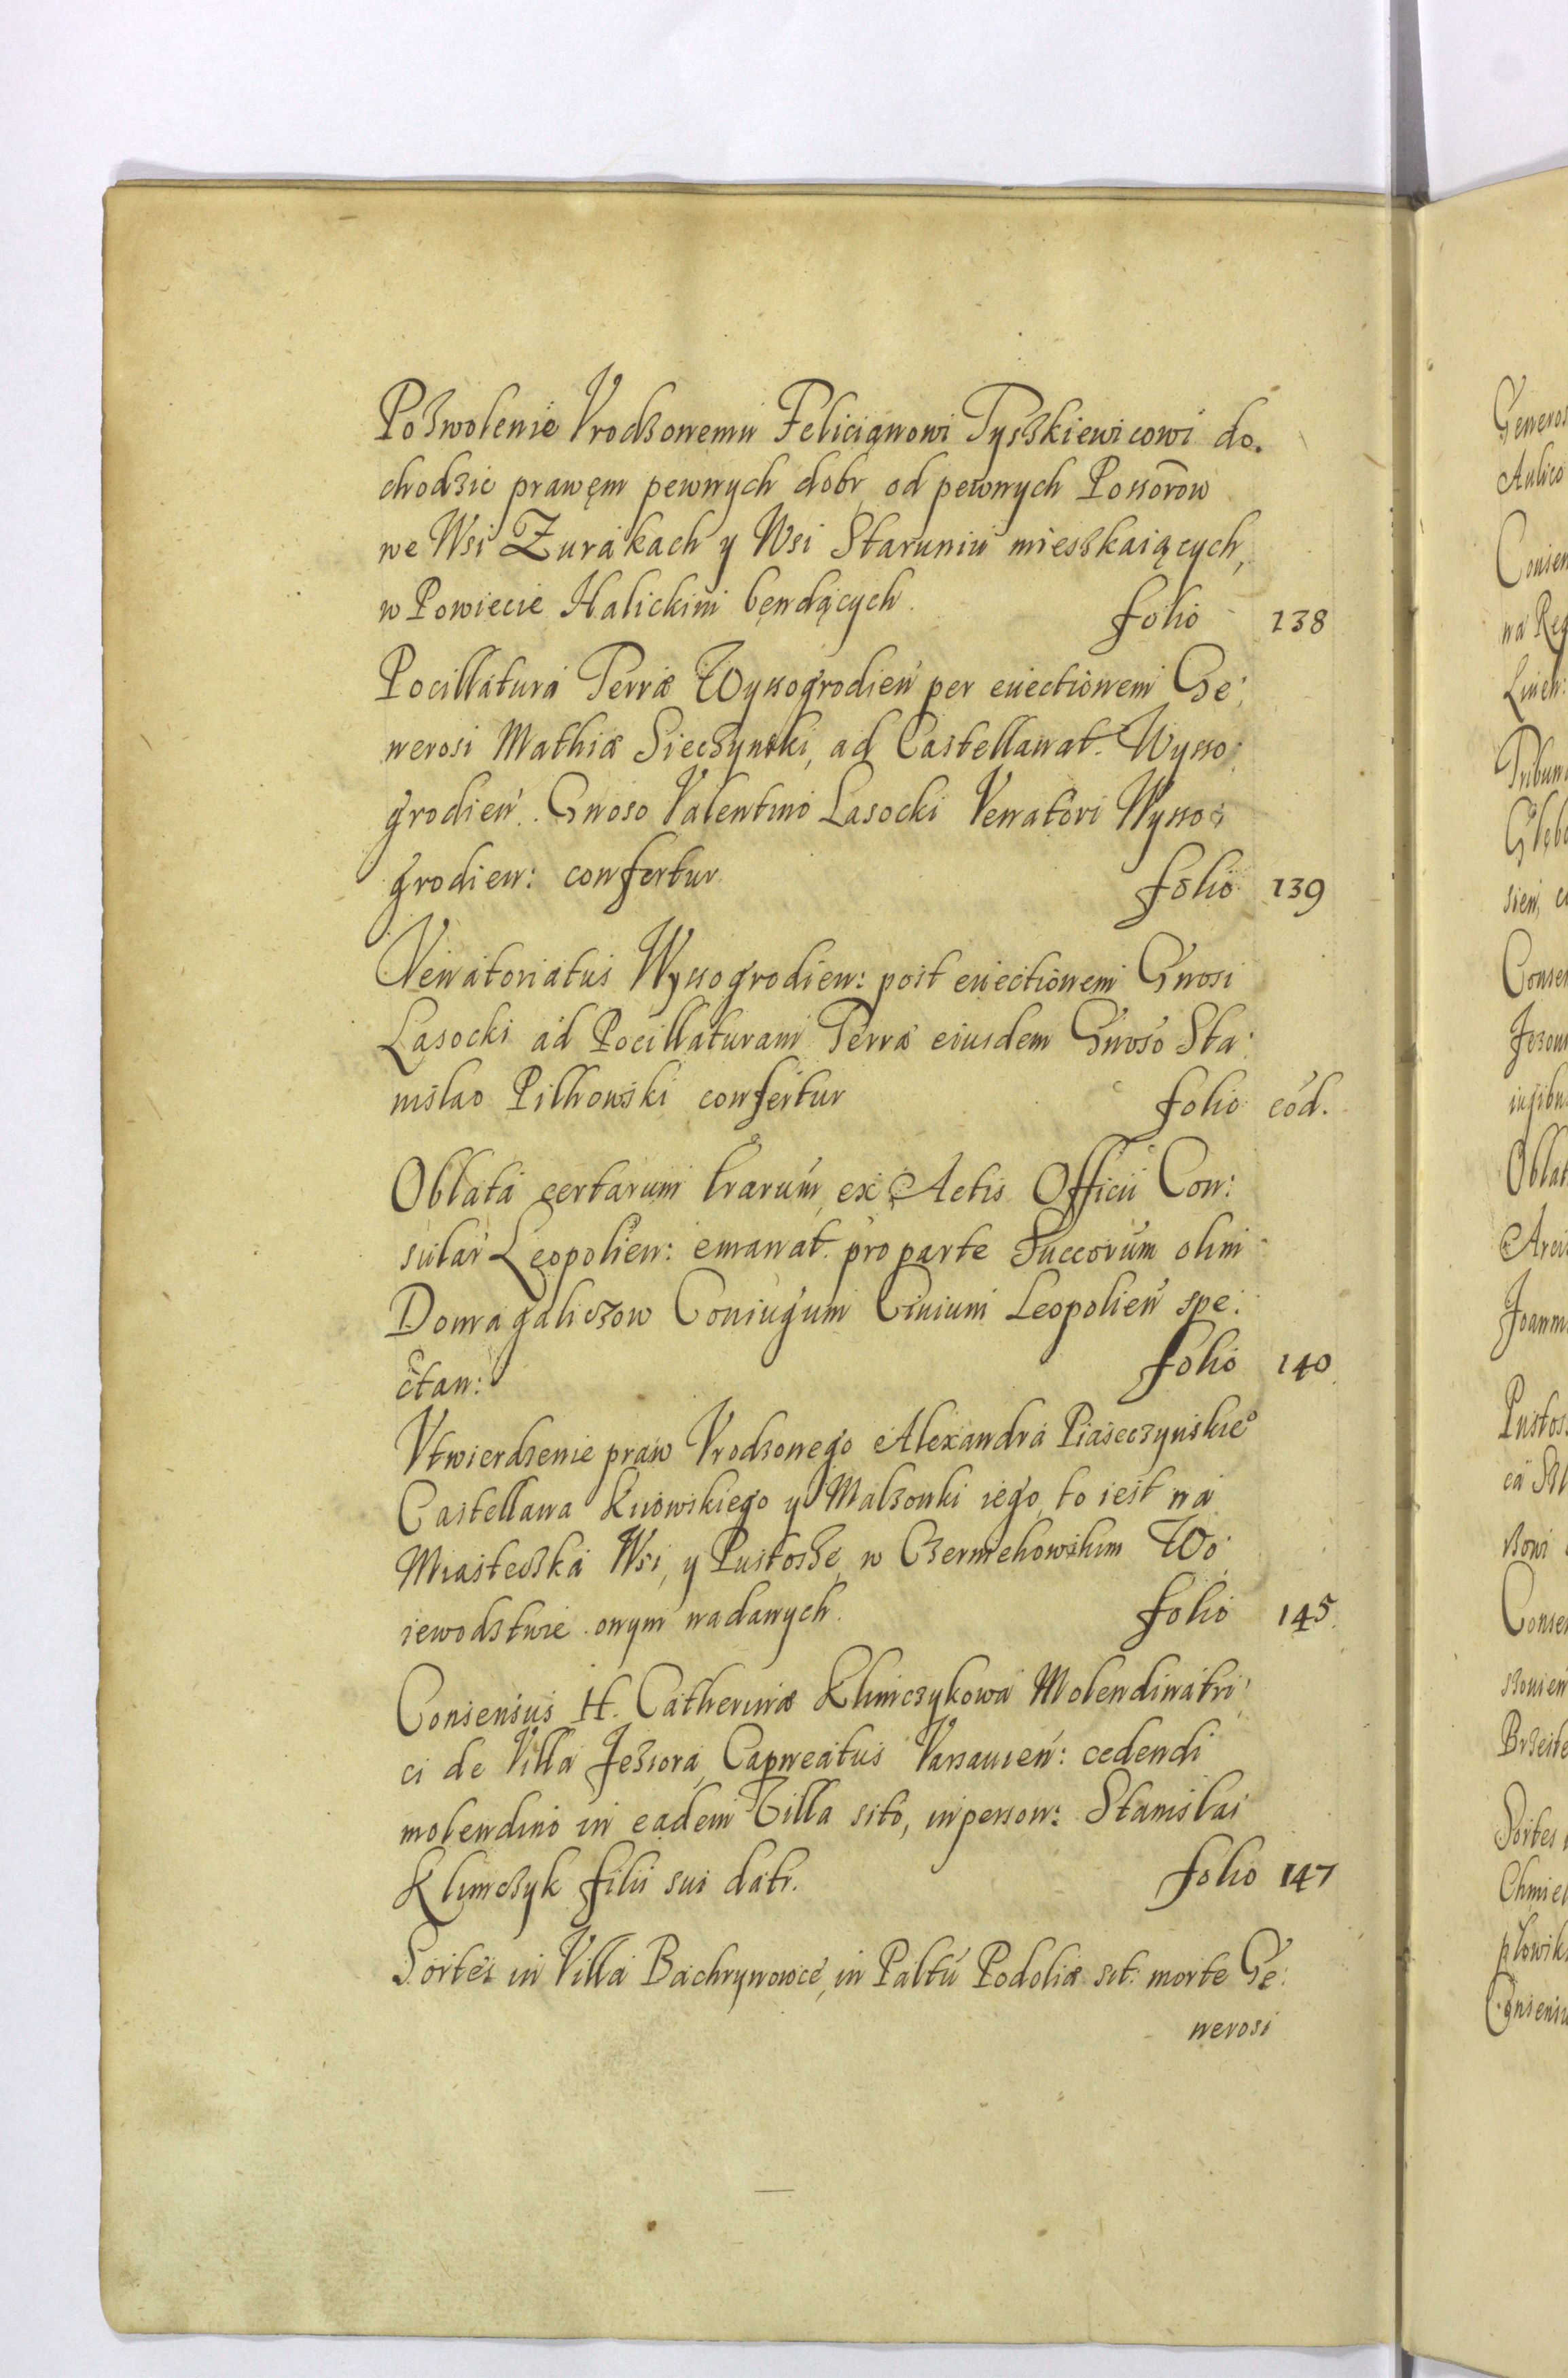 Pozwolenie Vrodzonemu Felicianowi Tyszkiewicowi do.
chodzic prawęm pewnych dobr, od pewnych Possorow
we Wsi Zurakach y Wsi Staruniu mieszkaiących,
w Powiecie Halickim bęndących. folio 138
Pocillatura Terræ Wyssogrodien per euectionem Ge:
nerosi Mathiæ Sieczynski, ad Castellanat. Wysso:
grodien. Gnoso Valentino Lasocki Venatori Wysso:
grodien: confertur. folio 139
Venatoriatus Wyssogrodien: post euectionem Gnosi
Lasocki ad Pocillaturam Terræ eiusdem Gnoso Sta:
nislao Pilhowski confertur folio eod.
Oblata certarum lrarum, ex Actis Officii Con:
sular Leopolien: emanat. pro parte Succorum olim
Domagaliczow Coniugum Ciuium Leopolien spe:
ctan: folio 140
Vtwierdzenie praw Vrodzonego Alexandra Piaseczynskieo
Castellana Kiiowskiego y Malzonki iego, to iest na
Miasteczka Wsi, y Pustosze, w Czerniehowskim Wo
iewodztwie onym nadanych. folio 145.
Consensus H. Catherinæ Klimczykowa Molendinatri:
ci de Villa Jeziora, Capneatus Varsauien: cedendi
molendino in eadem Villa sito, in person: Stanislai
Klimczyk filii sui datr. folio 147
Sortes in Villa Bachrynowce, in Paltu Podoliæ sit: morte Ge:
nerosi
Generos
Aulico
Consen
na Reg
Tribun
sien, c
Consen
Oblat
Joann
Pustos
Consen
Sortes
Chmiel
Consensu